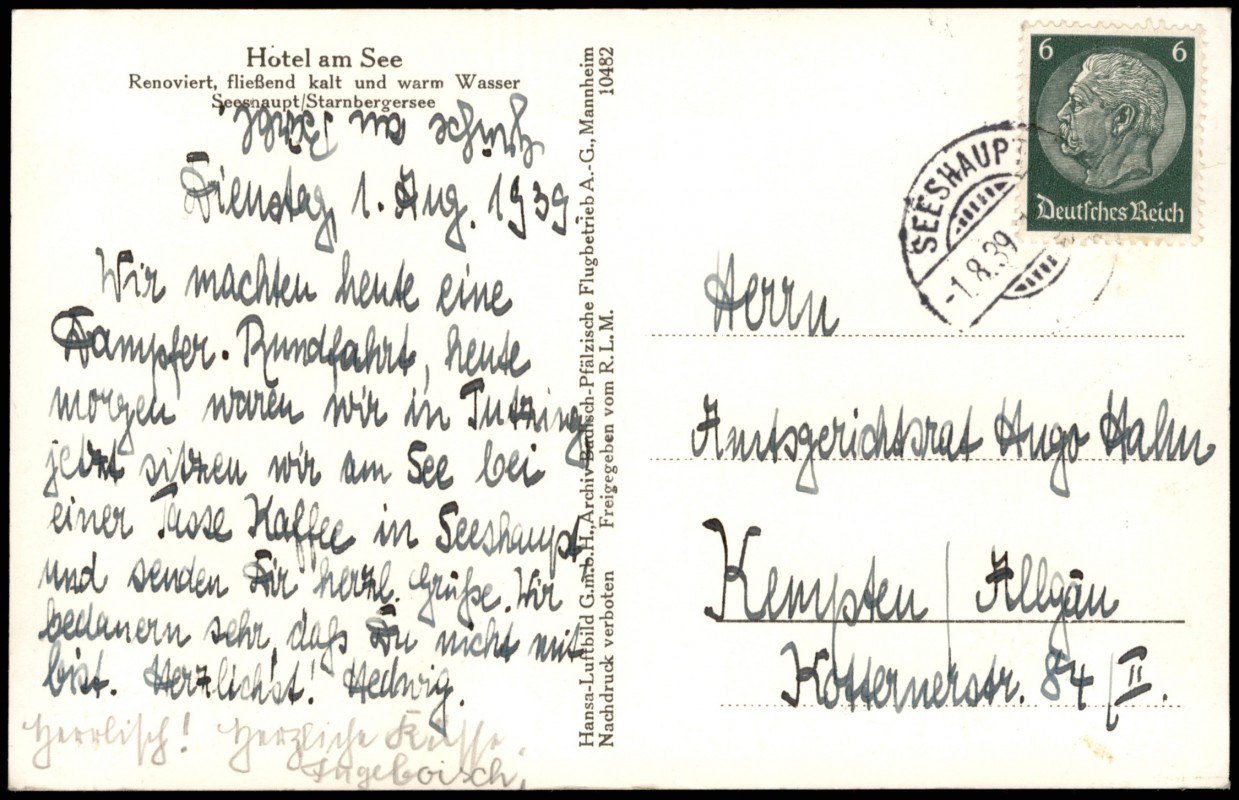 Hotel am See
Renoviert, fließend kalt und warm Wasser
Seeshaupt/Starnbergersee
Dienstag, 1. Aug. 1939.
Wir machten heute eine
Dampfer-Rundfahrt, heute
morgen waren wir in Tutzing
jetzt sitzen wir am See bei
einer Tasse Kaffee in Seeshaupt
und senden Dir herzl. Grüße. Wir
bedauern sehr, daß Du nicht mit
bist. Herzlichst! Hedwig.
Herrlisch! Herzliche Küsse.
Ingeboisch.
Hansa-Luftbild G.m.b.H., Archiv Badisch-Pfälzische Flugbetrieb A.-G., Mannheim
Nachdruck verboten Freigegeben vom R.L.M. 10482
6 6
Deutsches Reich
SEESHAUPT
-1.8.39
Herrn
Amtsgerichtsrat Hugo Hahn
Kempten / Allgäu
Kotternerstr. 84/II.